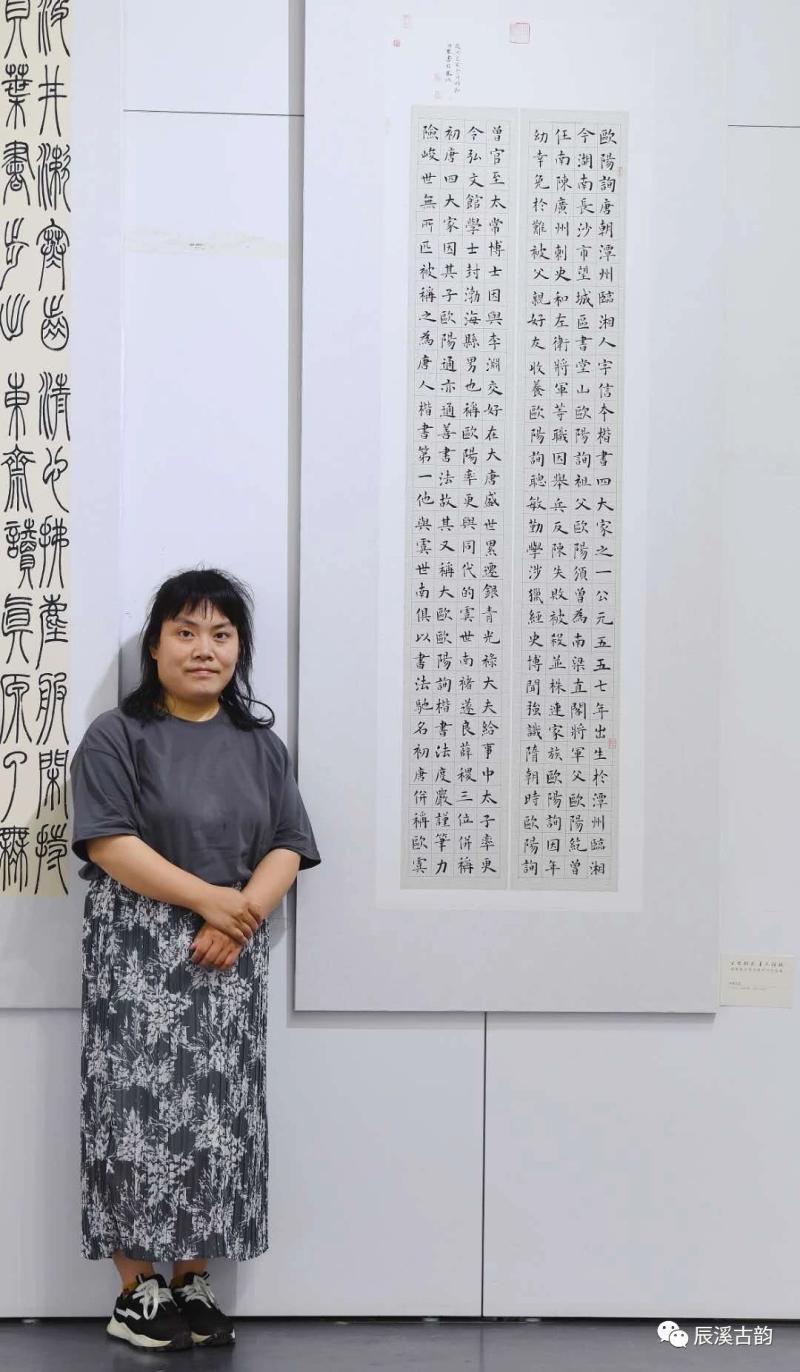 歐陽詢唐朝潭州臨湘人字信本楷書四大家之一公元五五七年出生於潭州臨湘
今湖南長沙市望城區書堂山歐陽詢祖父歐陽須曾為南梁直閣將軍父歐陽紇曾
任南陳廣州刺史和左衛將軍等職因舉兵反陳失敗被殺並株連家族歐陽詢因年
幼幸免於難被父親好友收養歐陽詢聰敏勤學涉獵經史博聞強識隋朝時歐陽詢
曾官至太常博士因與李淵交好在大唐盛世累遷銀青光祿大夫給事中太子率更
令弘文館學士封渤海縣男也稱歐陽率更與同代的虞世南褚遂良薛稷三位併稱
初唐四大家因其子歐陽通亦通善書法故其又稱大歐歐陽詢楷書法度嚴謹筆力
險峻世無所匹被稱之為唐人楷書第一他與虞世南俱以書法馳名初唐併稱歐虞
汲井漱寒齒清心拂塵服閑持
貝葉書步出東齋讀真原了無
辰溪古韵